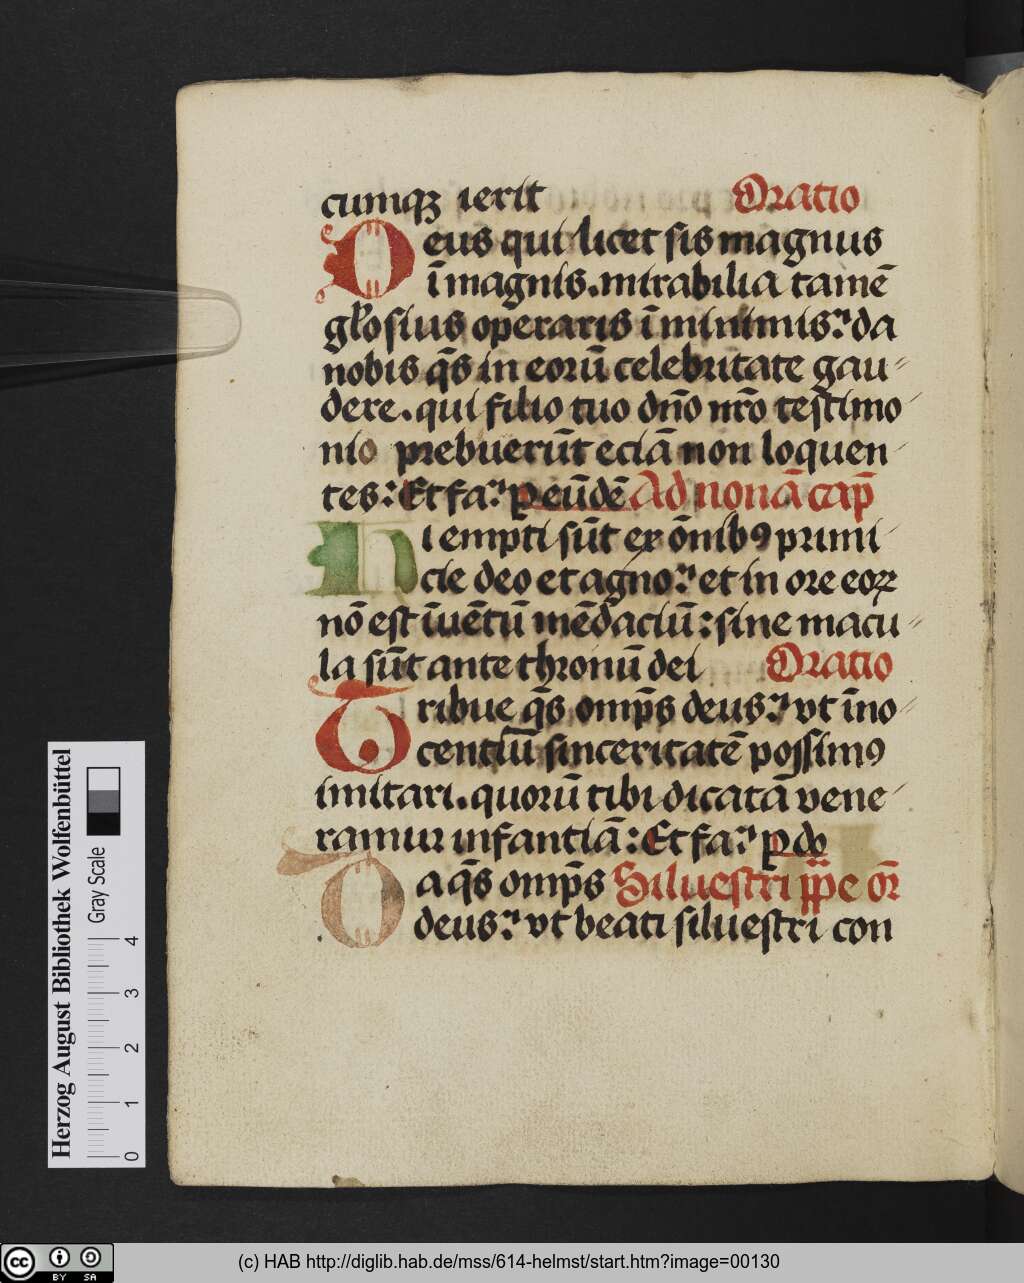 cumqꝫ ierit Oratio
Deus qui licet sis magnus
ī magnis. mirabilia tamē
gl̄osius operaris ī minimis: da
nobis q̄s in eorū celebritate gau
dere. qui filio tuo dn̄o nr̄o testimo
nio prebuerūt eciā non loquen
tes: Et fa: ꝑ eūdē Ad nonā cap̄
Hi empti sūt ex ōnibꝯ primi
cie deo et agno: et in ore eoꝝ
nō est īuētū mēdaciū: sine macu
la sūt ante thronū dei Oratio
Tribue q̄s omp̄s deus: vt īno
centiū sinceritatē possimꝯ
imitari. quorū tibi dicatā vene
ramur infantiā: Et fa: ꝑ do
Da q̄s omp̄s Siluestri pp̄e or̄
deus: vt beati siluestri con
Herzog August Bibliothek Wolfenbüttel
Gray Scale
0 1 2 3 4
cc BY SA
(c) HAB http://diglib.hab.de/mss/614-helmst/start.htm?image=00130